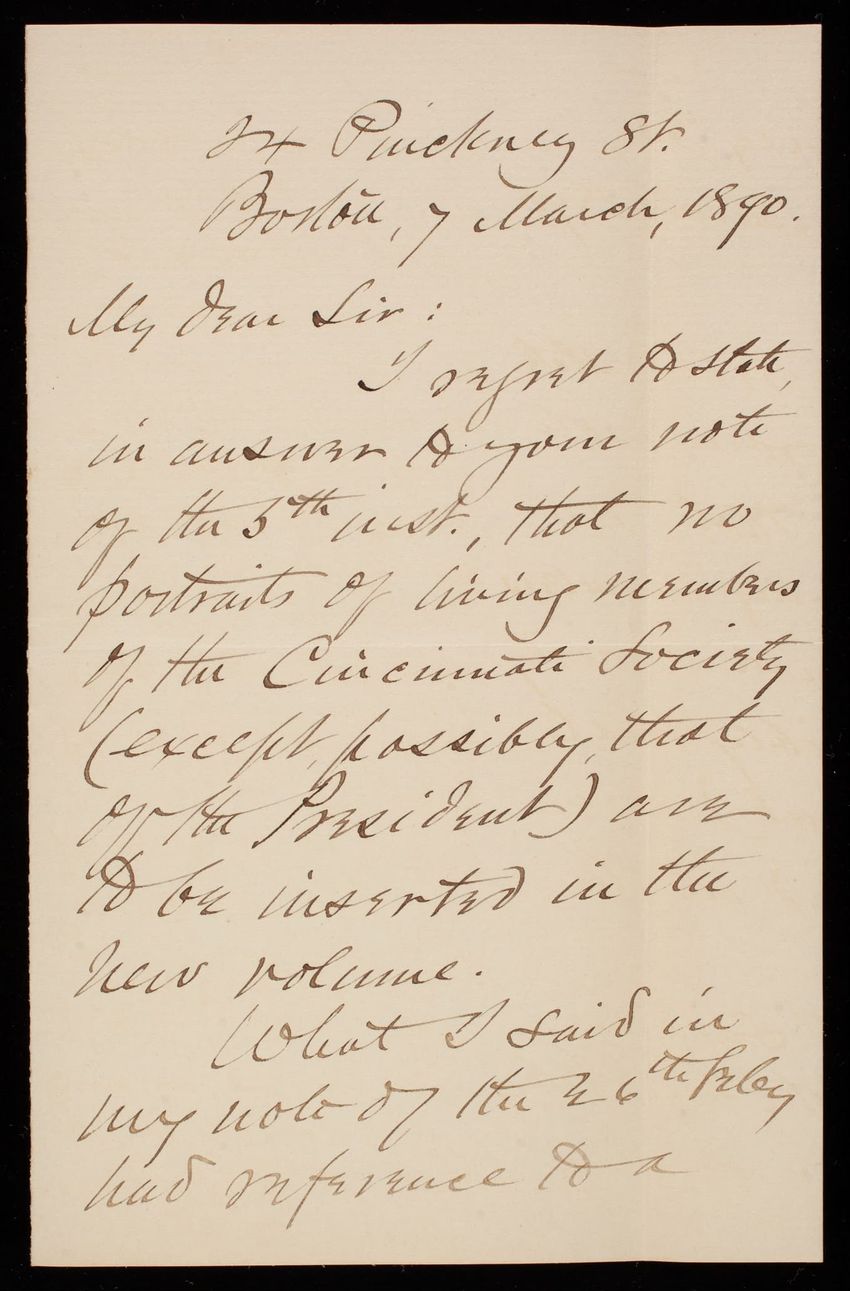 24 Pinckney St.
Boston, 7 March, 1890.
My dear Sir:
I regret to state,
in answer to your note
of the 5th inst., that no
portraits of living members
of the Cincinnati Society
(except, possibly, that
of the President) are
to be inserted in the
new volume.
What I said in
my note of the 26th Feby
had reference to a